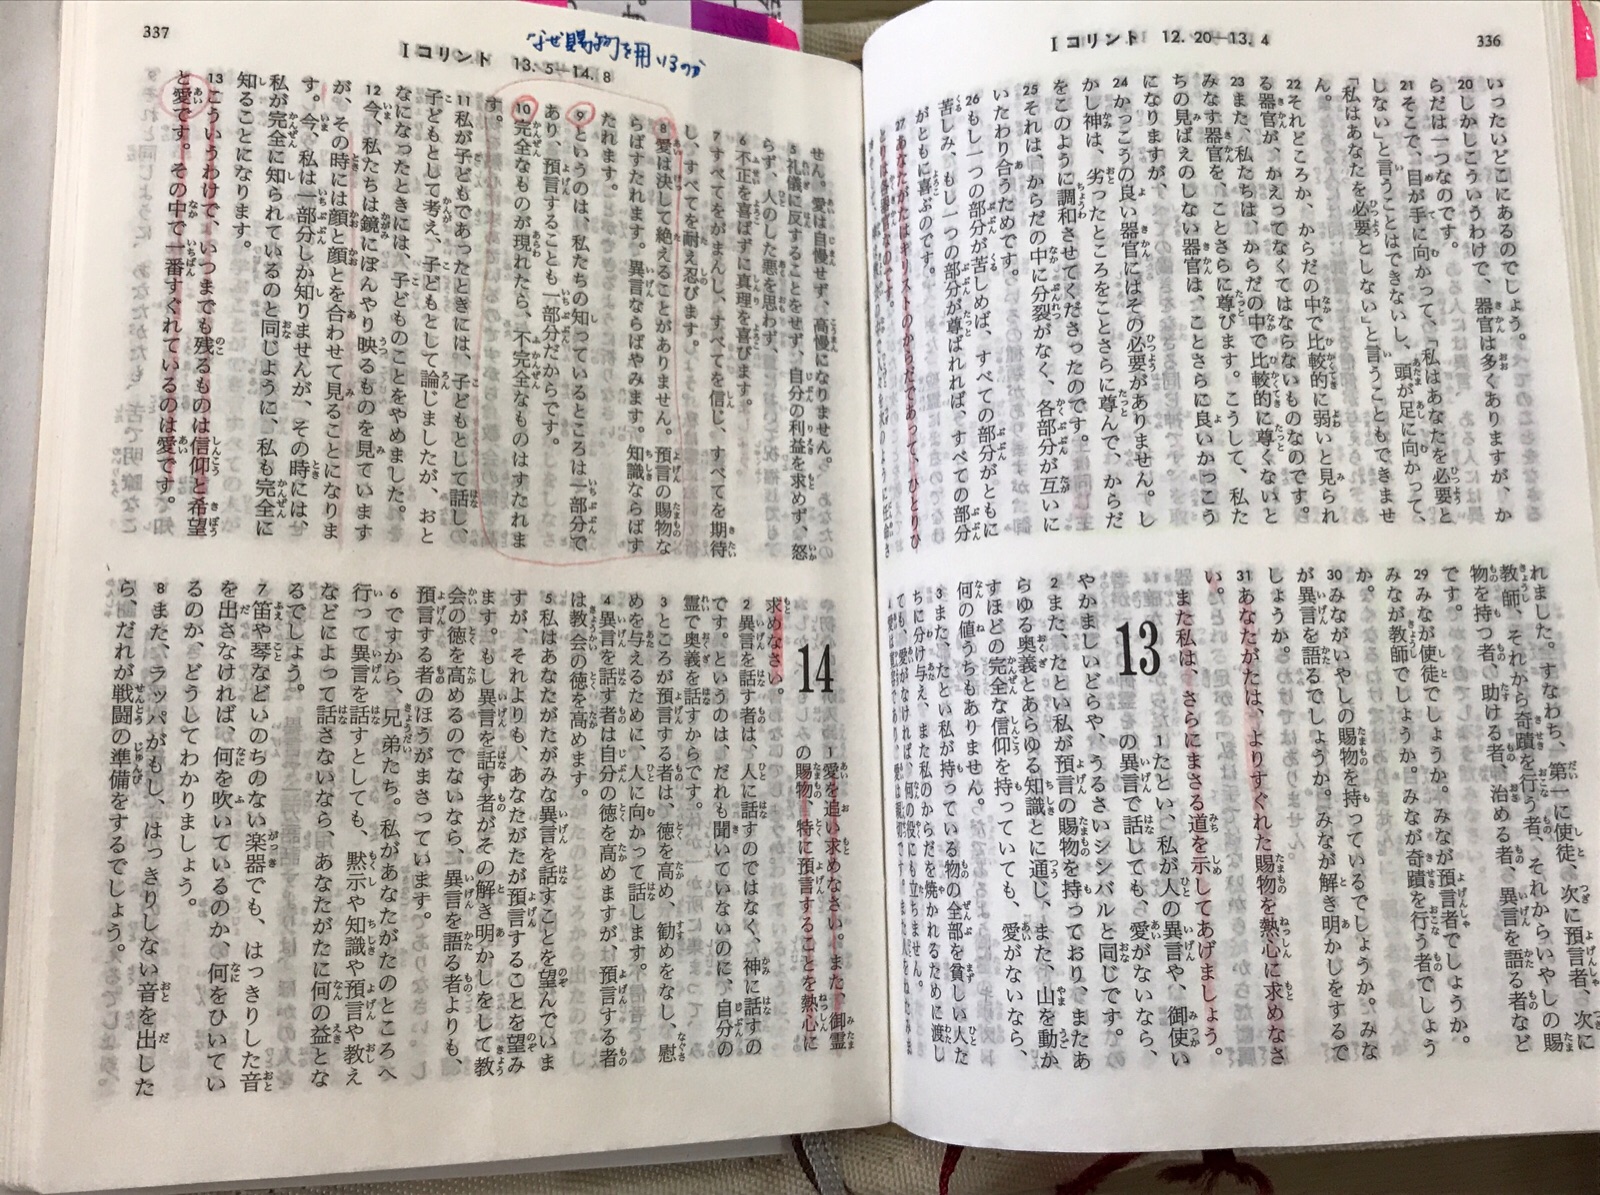 336
Ⅰコリント 12.20―13.4
いったいどこにあるのでしょう。
20しかしこういうわけで、器官は多くありますが、か
らだは一つなのです。
21そこで、目が手に向かって、「私はあなたを必要と
しない」と言うことはできないし、頭が足に向かって、
「私はあなたを必要としない」と言うこともできませ
ん。
22それどころか、からだの中で比較的に弱いと見られ
る器官が、かえってなくてはならないものなのです。
23また、私たちは、からだの中で比較的に尊くないと
みなす器官を、ことさらに尊びます。こうして、私た
ちの見ばえのしない器官は、ことさらに良いかっこう
になりますが、
24かっこうの良い器官にはその必要がありません。し
かし神は、劣ったところをことさらに尊んで、からだ
をこのように調和させてくださったのです。
25それは、からだの中に分裂がなく、各部分が互いに
いたわり合うためです。
26もし一つの部分が苦しめば、すべての部分がともに
苦しみ、もし一つの部分が尊ばれれば、すべての部分
がともに喜ぶのです。
27あなたがたはキリストのからだであって、ひとりひ
れました。すなわち、第一に使徒、次に預言者、次に
教師、それから奇蹟を行う者、それからいやしの賜
物を持つ者、助ける者、治める者、異言を語る者など
です。
29みなが使徒でしょうか。みなが預言者でしょうか。
みなが教師でしょうか。みなが奇蹟を行う者でしょう
か。
30みながいやしの賜物を持っているでしょうか。みな
が異言を語るでしょうか。みなが解き明かしをするで
しょうか。
31あなたがたは、よりすぐれた賜物を熱心に求めなさ
い。
また私は、さらにまさる道を示してあげましょう。
13
1たとい、私が人の異言や、御使い
の異言で話しても、愛がないなら、
やかましいどらや、うるさいシンバルと同じです。
2また、たとい私が預言の賜物を持っており、またあ
らゆる奥義とあらゆる知識とに通じ、また、山を動か
すほどの完全な信仰を持っていても、愛がないなら、
何の値うちもありません。
3また、たとい私が持っている物の全部を貧しい人た
ちに分け与え、また私のからだを焼かれるために渡し
ても、愛がなければ、何の役にも立ちません。
337
Ⅰコリント 13.5―14.8
なぜ賜物を用いるのか
せん。愛は自慢せず、高慢になりません。
5礼儀に反することをせず、自分の利益を求めず、怒
らず、人のした悪を思わず、
6不正を喜ばずに真理を喜びます。
7すべてをがまんし、すべてを信じ、すべてを期待
し、すべてを耐え忍びます。
8愛は決して絶えることがありません。預言の賜物な
らばすたれます。異言ならばやみます。知識ならばす
たれます。
9というのは、私たちの知っているところは一部分で
あり、預言することも一部分だからです。
10完全なものが現れたら、不完全なものはすたれま
す。
11私が子どもであったときには、子どもとして話し、
子どもとして考え、子どもとして論じましたが、おと
なになったときには、子どものことをやめました。
12今、私たちは鏡にぼんやり映るものを見ています
が、その時には顔と顔とを合わせて見ることになりま
す。今、私は一部分しか知りませんが、その時には、
私が完全に知られているのと同じように、私も完全に
知ることになります。
13こういうわけで、いつまでも残るものは信仰と希望
と愛です。その中で一番すぐれているのは愛です。
14
1愛を追い求めなさい。また、御霊
の賜物、特に預言することを熱心に
求めなさい。
2異言を話す者は、人に話すのではなく、神に話すの
です。というのは、だれも聞いていないのに、自分の
霊で奥義を話すからです。
3ところが預言する者は、徳を高め、勧めをなし、慰
めを与えるために、人に向かって話します。
4異言を話す者は自分の徳を高めますが、預言する者
は教会の徳を高めます。
5私はあなたがたがみな異言を話すことを望んでいま
すが、それよりも、あなたがたが預言することを望み
ます。もし異言を話す者がその解き明かしをして教
会の徳を高めるのでないなら、異言を語る者よりも、
預言する者のほうがまさっています。
6ですから、兄弟たち。私があなたがたのところへ
行って異言を話すとしても、黙示や知識や預言や教え
などによって話さないなら、あなたがたに何の益とな
るでしょう。
7笛や琴などいのちのない楽器でも、はっきりした音
を出さなければ、何を吹いているのか、何をひいてい
るのか、どうしてわかりましょう。
8また、ラッパがもし、はっきりしない音を出した
ら、だれが戦闘の準備をするでしょう。